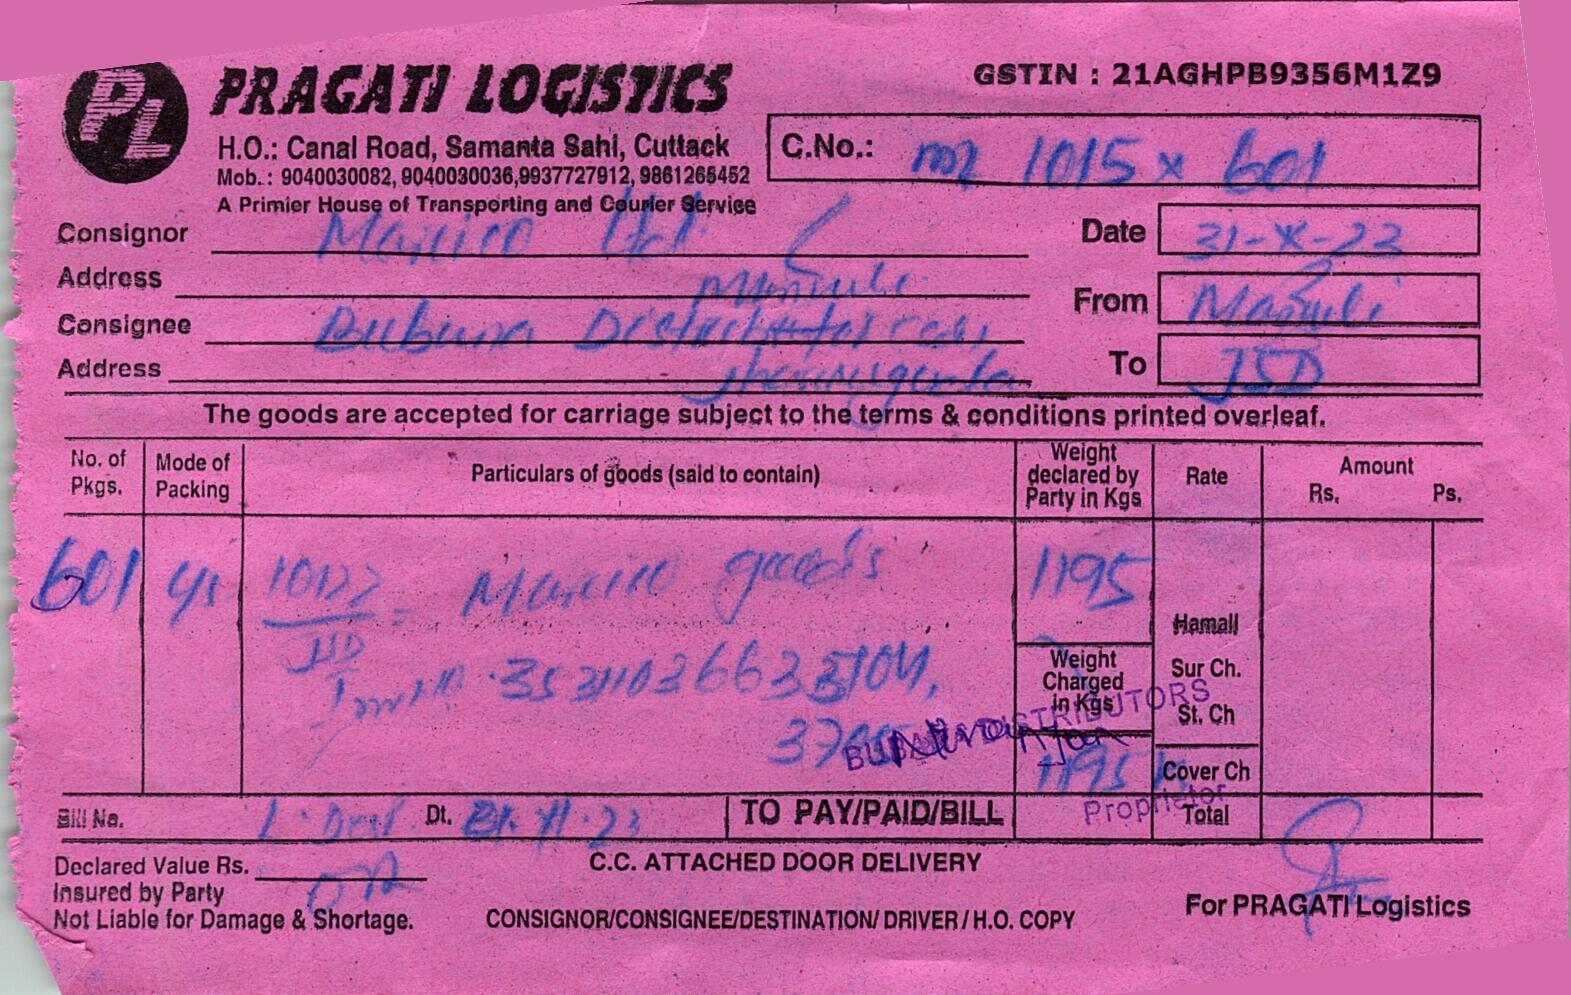 PL
PRAGATI LOGISTICS
GSTIN : 21AGHPB9356M1Z9
H.O.: Canal Road, Samanta Sahi, Cuttack
Mob.: 9040030082, 9040030036,9937727912, 9861265452
A Primier House of Transporting and Courier Service
C.No.: 1015 x 601
Consignor Marico Ltd.
Date 31-X-23
Address
From
Consignee Bubuna
Address
To JSD
The goods are accepted for carriage subject to the terms & conditions printed overleaf.
No. of Pkgs. Mode of Packing Particulars of goods (said to contain) Weight declared by Party in Kgs Rate Amount Rs. Ps.
601 Marico goods 1195
Hamali
JSD
Weight Charged in Kgs
Sur Ch.
St. Ch
DISTRIBUTORS
1195
Cover Ch
Proprietor
Bill No. Dt. TO PAY/PAID/BILL Total
Declared Value Rs.
C.C. ATTACHED DOOR DELIVERY
Insured by Party
Not Liable for Damage & Shortage.
CONSIGNOR/CONSIGNEE/DESTINATION/ DRIVER / H.O. COPY
For PRAGATI Logistics